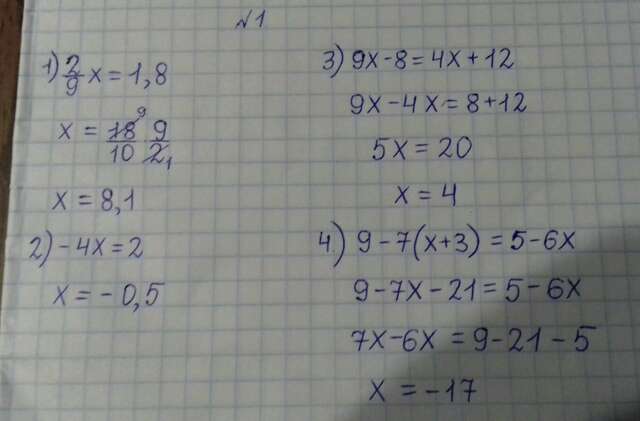 №1
1) 2/9 x = 1,8
x = 18/10 9/2 9 1
x = 8,1
2) -4x = 2
x = -0,5
3) 9x-8=4x+12
9x-4x=8+12
5x=20
x=4
4) 9-7(x+3)=5-6x
9-7x-21=5-6x
7x-6x=9-21-5
x=-17